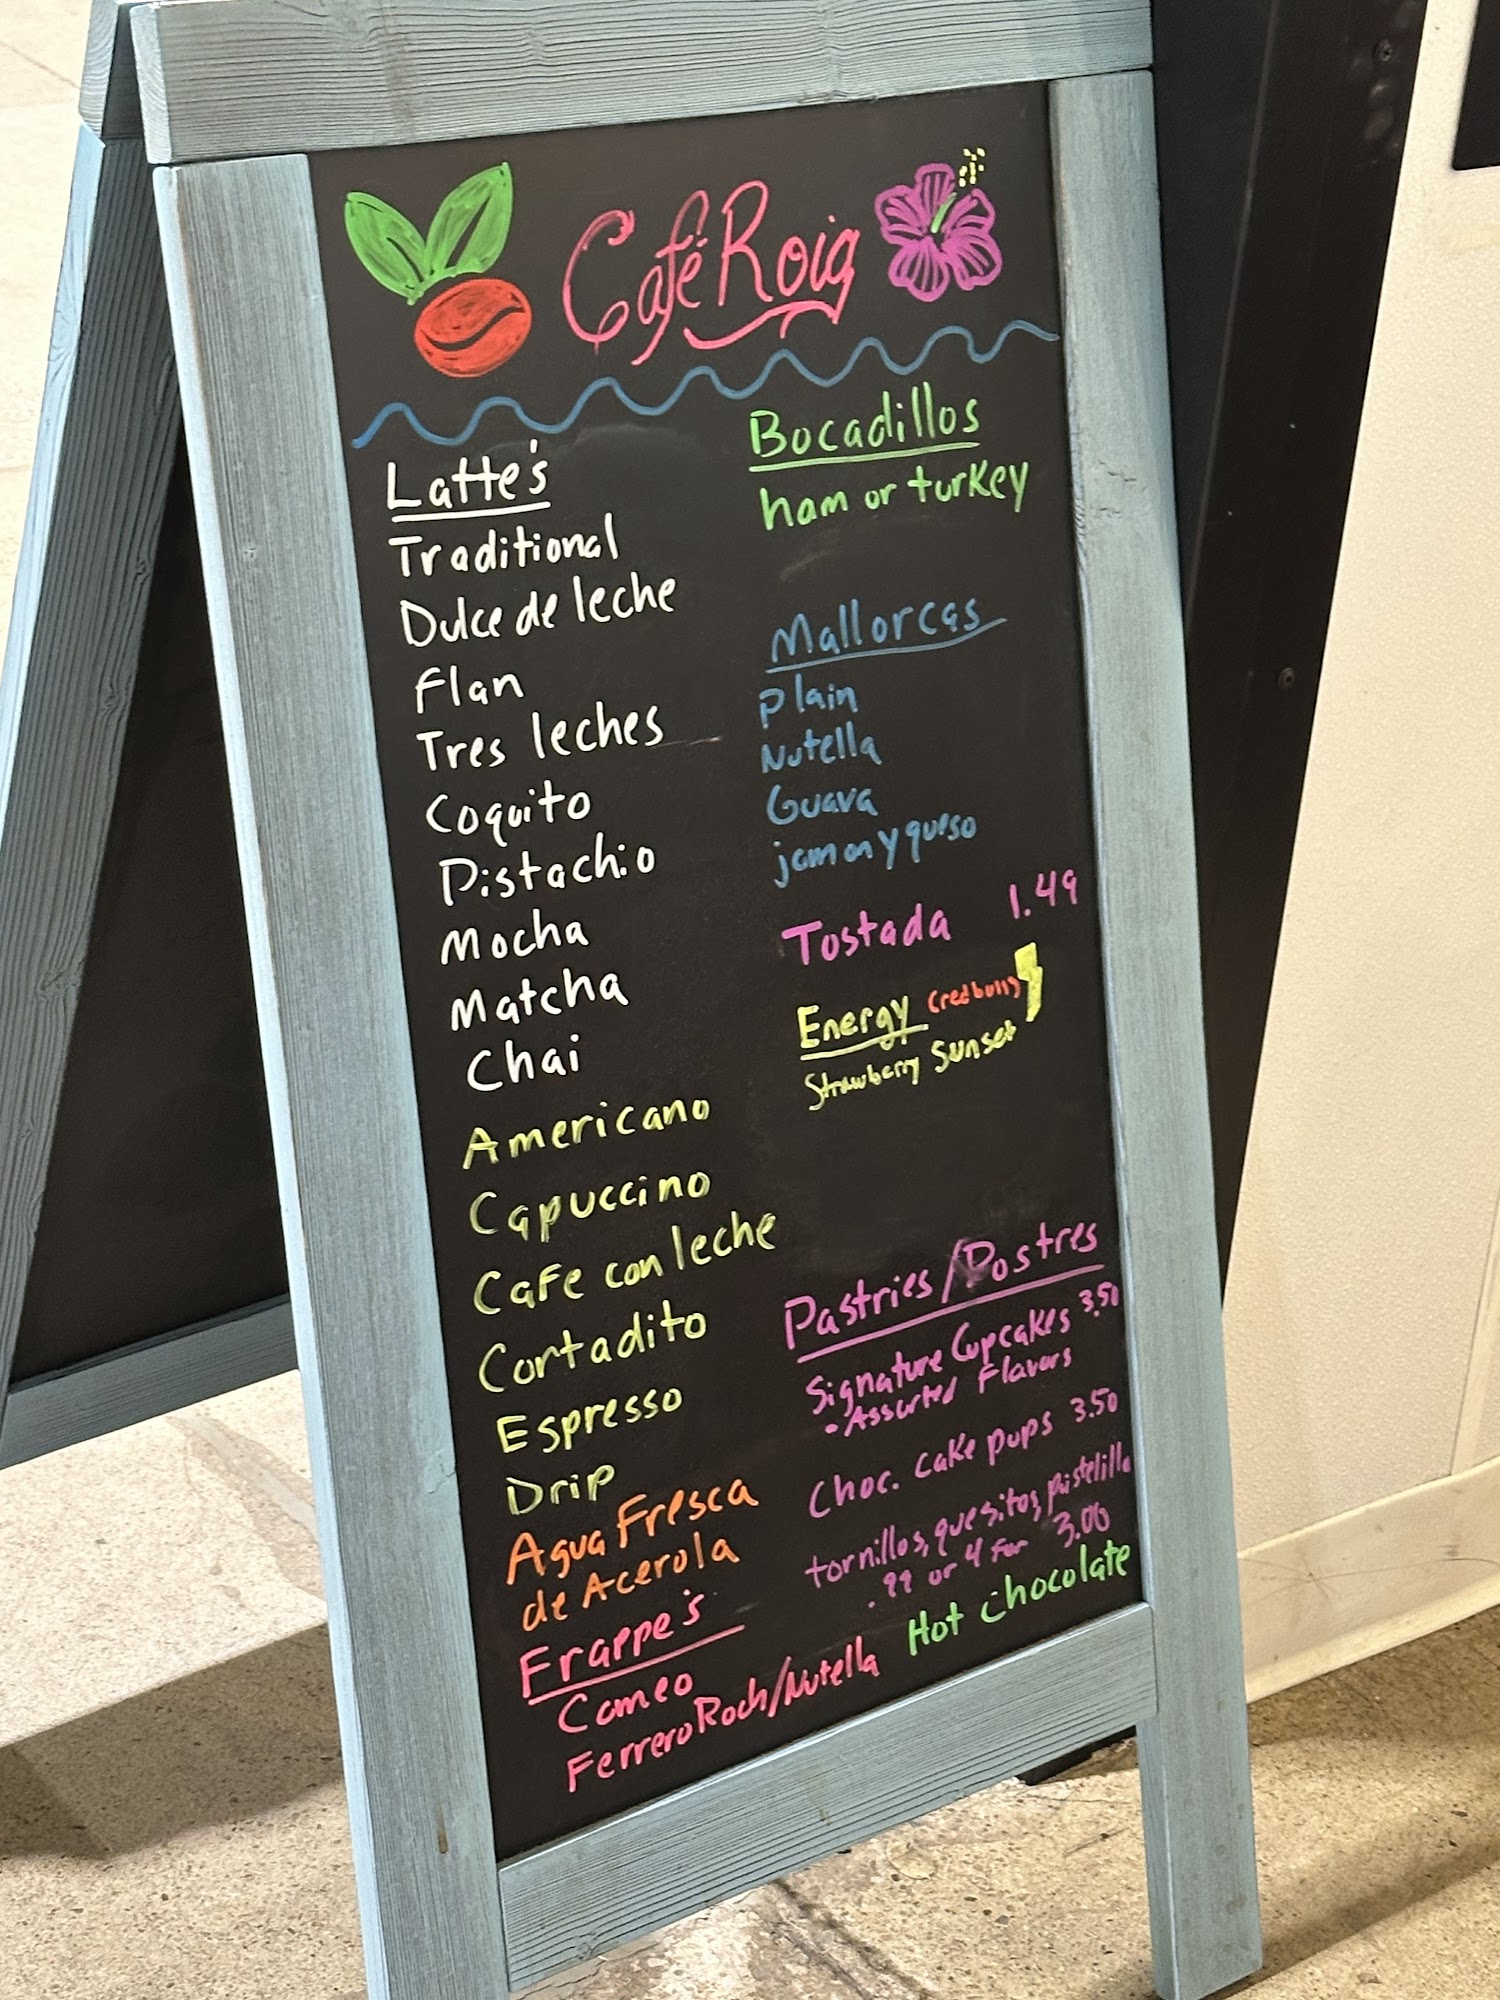 Café Roig
Latte's
Traditional
Dulce de leche
Flan
Tres leches
Coquito
Pistachio
Mocha
Matcha
Chai
Americano
Capuccino
Cafe con leche
Cortadito
Espresso
Drip
Agua Fresca
de Acerola
Frappe's
Cameo
Ferrero Roch/Nutella
Bocadillos
ham or turkey
Mallorcas
plain
Nutella
Guava
jamon y queso
Tostada 1.49
Energy (redbull)
Strawberry Sunset
Pastries/Postres
Signature Cupcakes 3.50
• Assorted Flavors
Choc. cake pops 3.50
tornillos, quesitos, pastelillo
.99 or 4 for 3.00
Hot chocolate